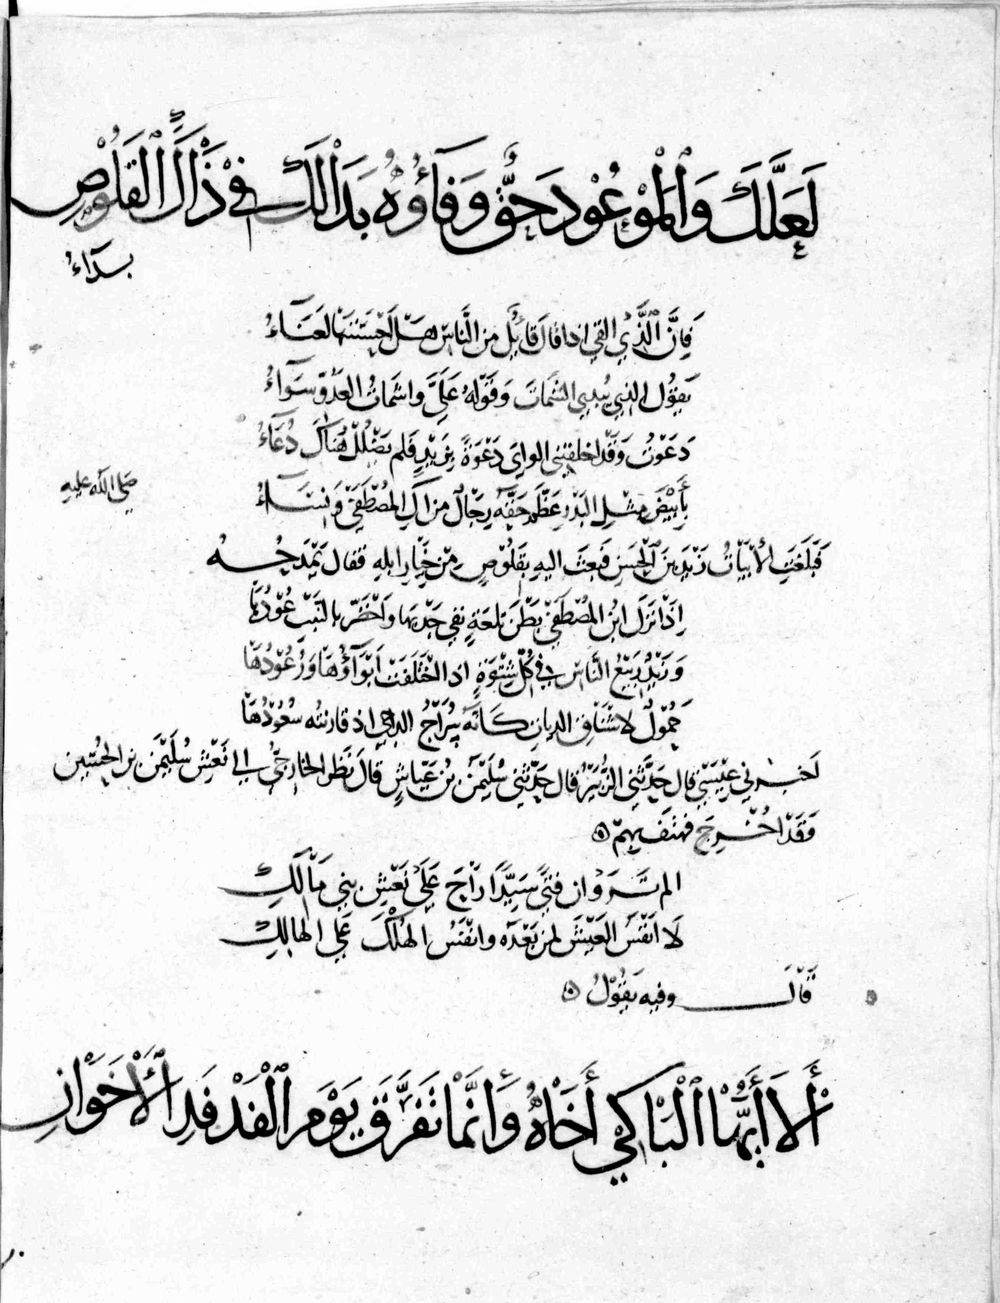 لَعَلَّكَ وَالْمَوْعُوْدَ حَقٌّ وَفَاؤُهُ بَدَالَكَ فِيْ ذَاكَ الْقَلُوْصِ
بَدَاءُ
فَاِنَّ الَّذِي القي اذا قال قَائِل من النَّاس هَل اَحْسَسْتَها لعَنَاءُ
يَقُوْل الذي يُبدي الشمَات وَقَوْلهُ عَلَيَّ واشمَاتُ العَدُوّ سَوَاءُ
دَعَوْتُ وَقَدْ اخلفتني الواي دَعْوَةً بِزَيْدٍ فلم يَضْلُلْ هُنَاكَ دُعَاءُ
بِأَبْيَضَ مثْلِ البَدْرِ عَظَّمَ حَقَّهُ رجَالٌ من اٰلِ المصْطَفَى وَنسَاءُ
صَلى الله عليه
فَبَلَغَتِ الأَبْيَاتُ زَيْدَ بنَ الحَسَنِ فَبعَثَ اليهِ بقَلُوْصٍ مِنْ خيَارِ ابلهِ فقال يَمْدَحُهُ
اِذَا نَزَلَ ابن المُصْطَفَى بَطْنَ تلعَةٍ نفى جَدْبَها وَاخْضَرّ بالنَبْتِ عُوْدُهَا
وَزَيْدٌ رَبيْعُ النَّاس فِي كُلِّ شتْوَةٍ اذا اخْتَلَفَتْ اَنْوَآؤُهَا وَرُعُوْدُهَا
حَمُوْلٌ لاشْنَاق الديات كَانَهُ سِرَاجُ الدجي اذ قارنته سُعُوْدُهَا
اَخْبَرني عِيْسَى قال حَدَّثَنِي الزُّبَيْرُ قال حَدَّثَنِي سُلَيْمٰنُ بْنُ عَيَّاشٍ قالَ نَظر الخارجيّ الي نَعْشِ سُلَيْمٰن بن الحُسَين
وَقَدْ اُخْرِجَ فهتَفَ بِهِمْ ٥
الم تَرَوْا ان فَتًى سَيِّدًا رَاحَ عَلَى نَعْشِ بني مَالِكِ
لَا انْفَسُ العَيْشَ لمن بَعْدَه وانْفَسُ الهُلْكَ عَلَى الهَالِكِ
قَالَ وفيه يَقُوْلُ ٥
أَلَا أَيُّهَا الْبَاكِي أَخَاهُ وَإِنَّمَا تَفَرَّقَ يَوْمَ الْفَدْفَدِ الْأَخَوَانِ